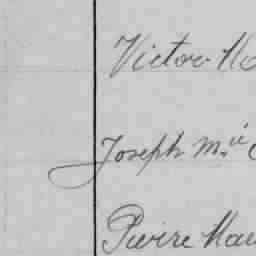 Victor
Joseph M.ie
Pierre